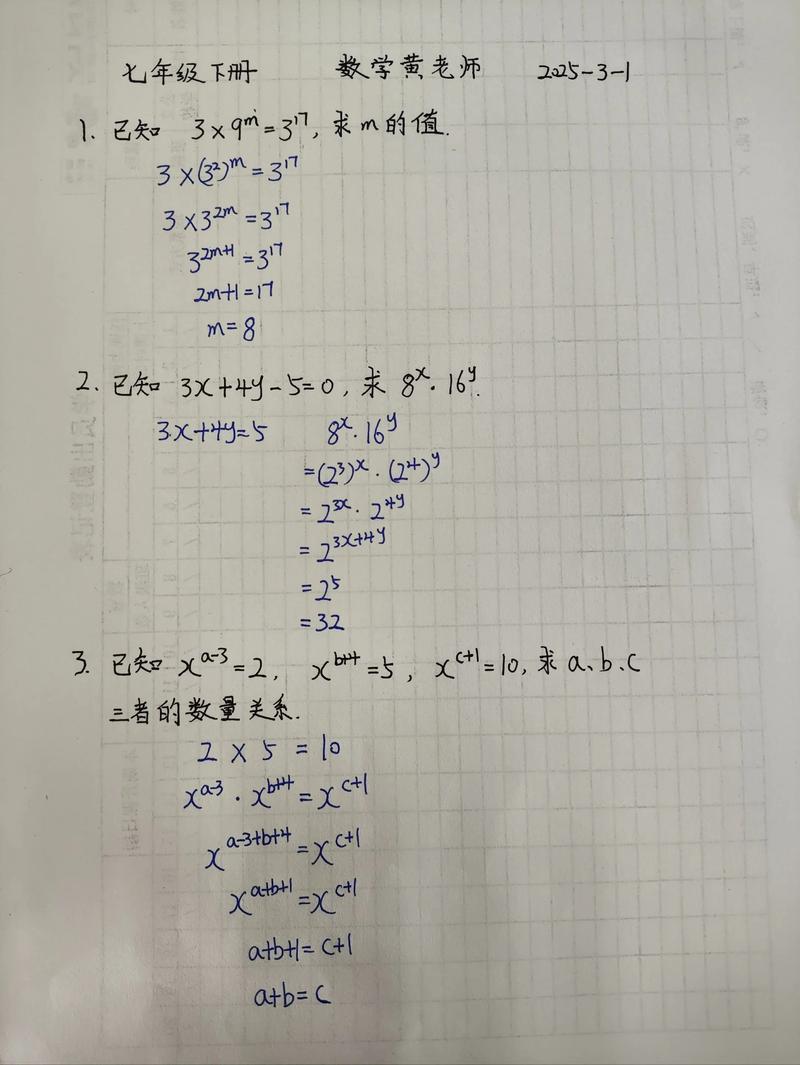 七年级下册 数学黄老师 2025-3-1
1. 已知 3×9^m=3^17, 求m的值.
3×(3^2)^m=3^17
3×3^2m=3^17
3^2m+1=3^17
2m+1=17
m=8
2. 已知 3x+4y-5=0, 求 8^x·16^y.
3x+4y=5 8^x·16^y
=(2^3)^x·(2^4)^y
=2^3x·2^4y
=2^3x+4y
=2^5
=32
3. 已知 x^a-3=2, x^b+4=5, x^c+1=10, 求 a、b、c
三者的数量关系.
2×5=10
x^a-3·x^b+4=x^c+1
x^a-3+b+4=x^c+1
x^a+b+1=x^c+1
a+b+1=c+1
a+b=c